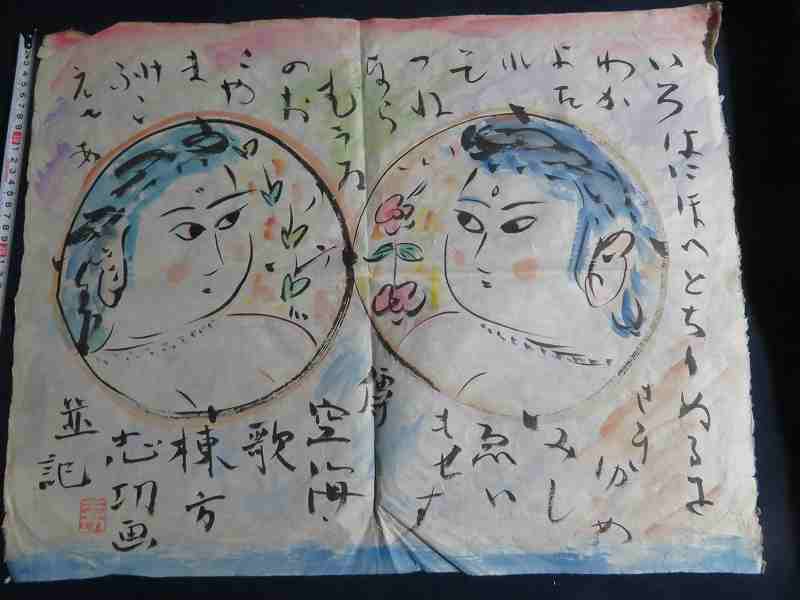 いろはにほへとちりぬるを
わか
よた
れ
そ
つね
なら
むうゐ
のお
くや
ま
けふこ
えてあ
さき
ゆめ
みし
ゑひ
もせす
傳
空海
歌
棟方
志功画
並記